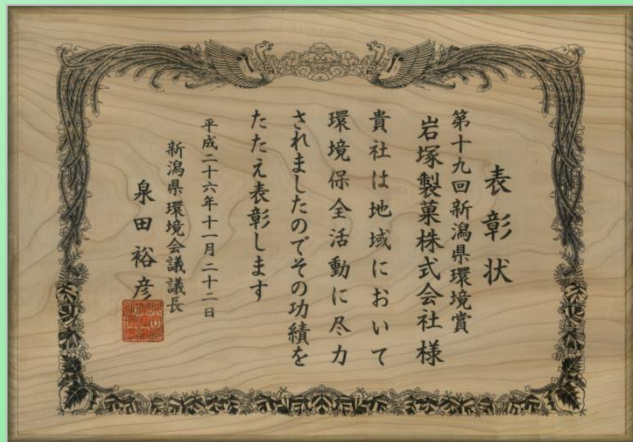 表彰状
第十九回新潟県環境賞
岩塚製菓株式会社様
貴社は地域において
環境保全活動に尽力
されましたのでその功績を
たたえ表彰します
平成二十六年十一月二十二日
新潟県環境会議議長
泉田裕彦